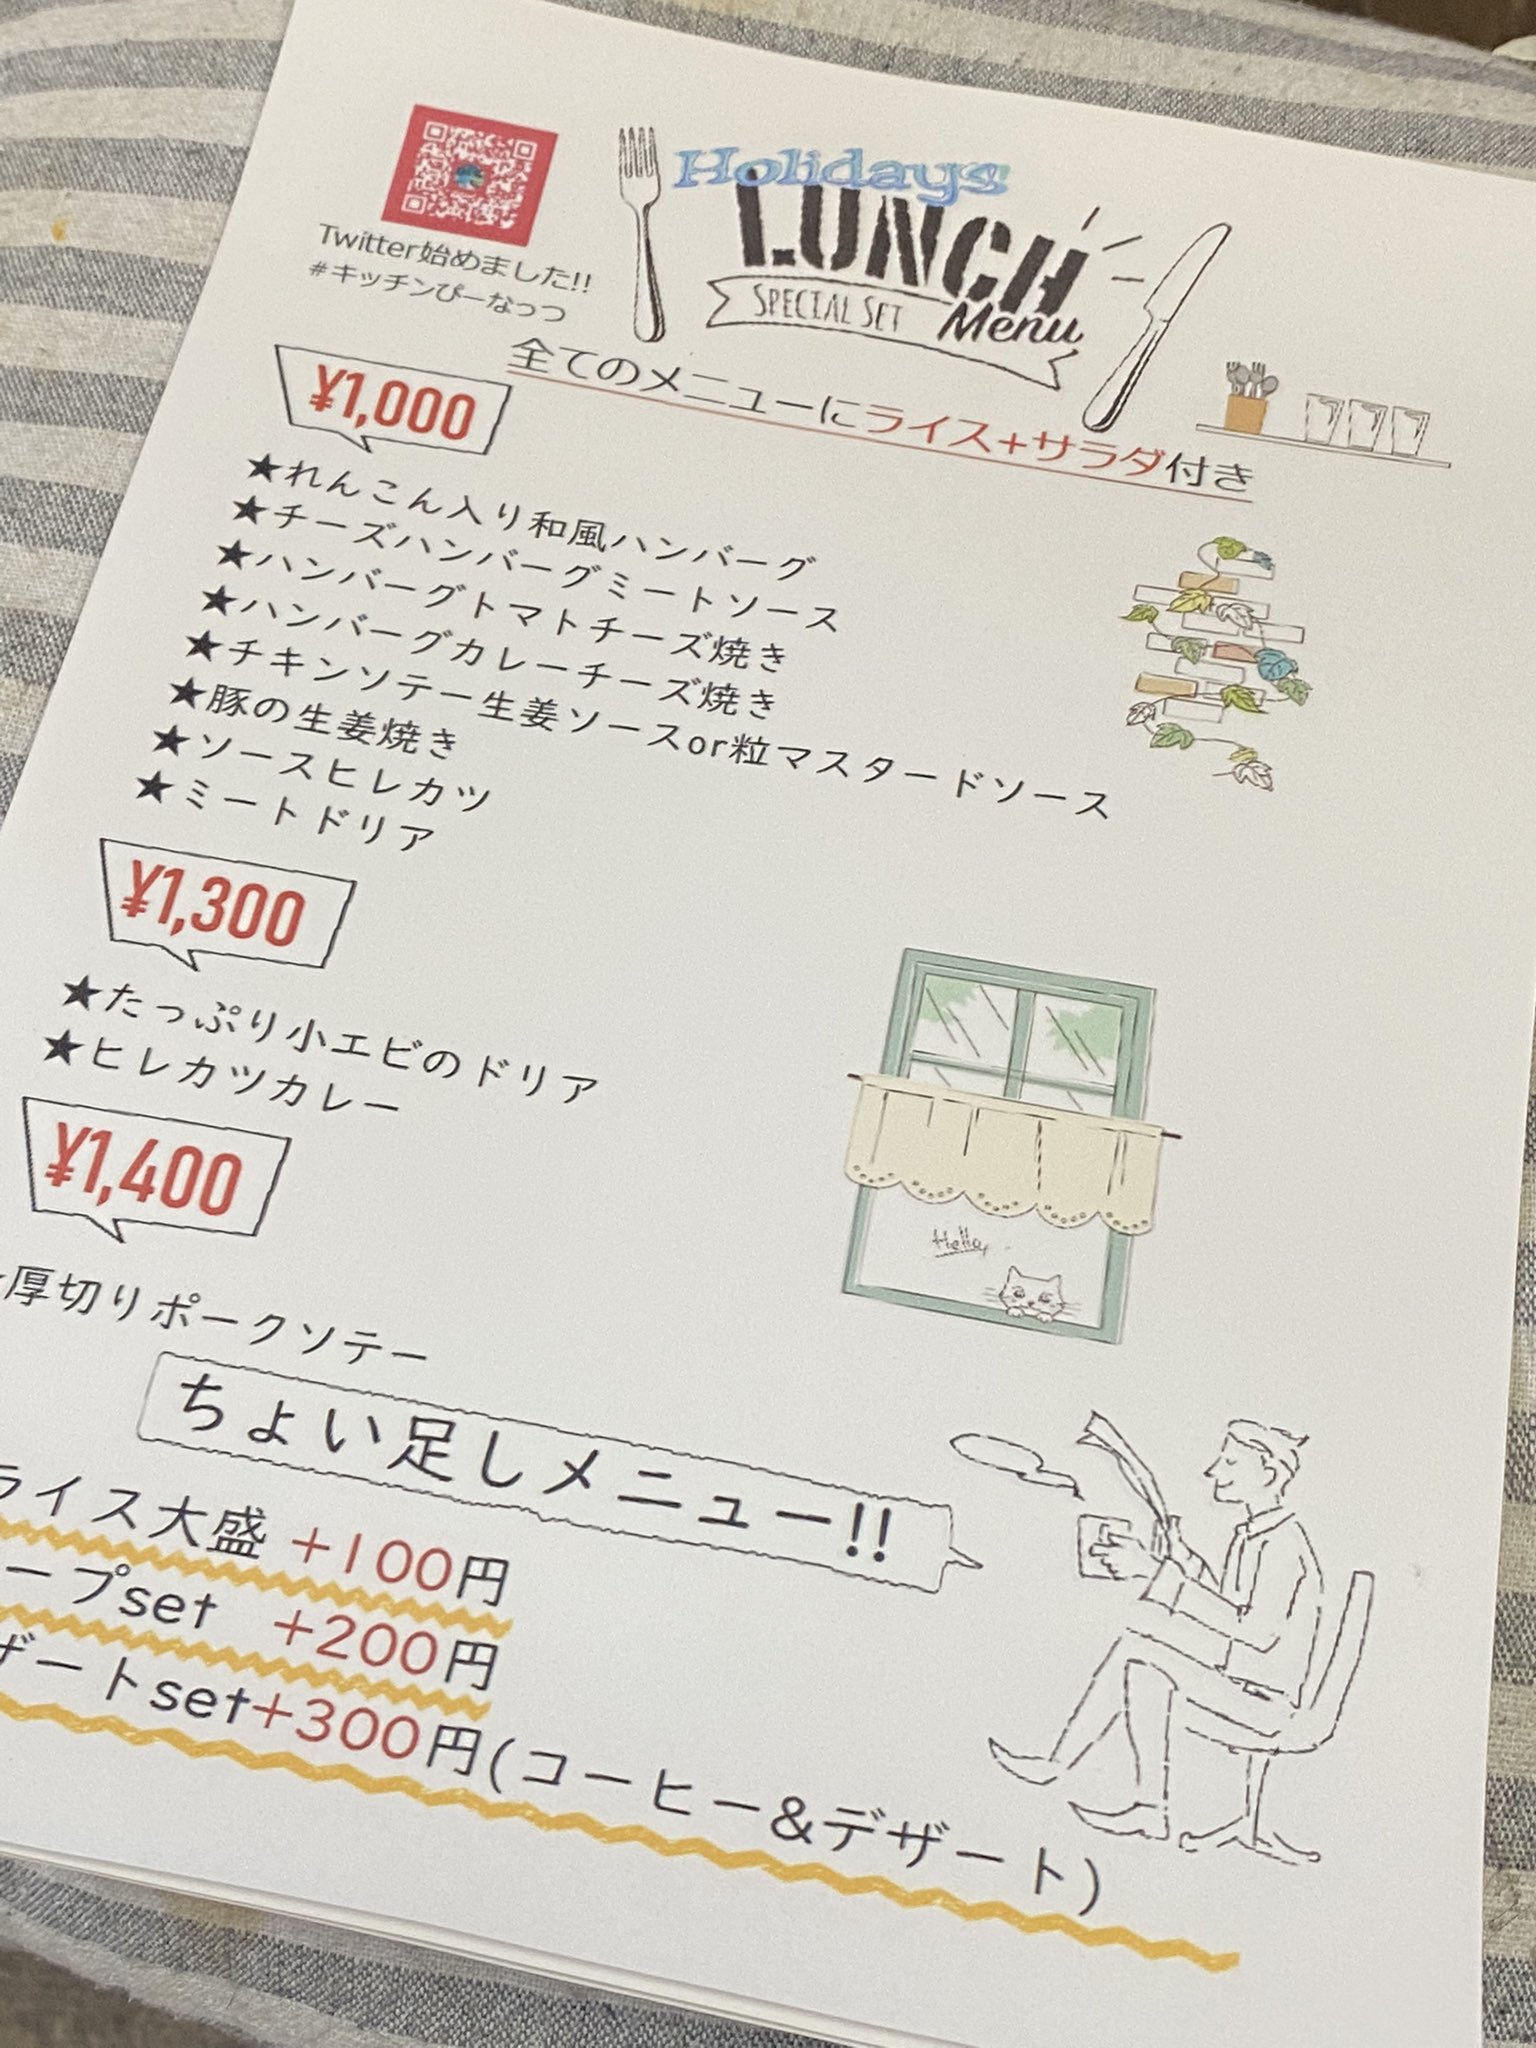 Twitter始めました!!
#キッチンぴーなっつ
Holidays
LUNCH
SPECIAL SET
Menu
全てのメニューにライス+サラダ付き
¥1,000
★れんこん入り和風ハンバーグ
★チーズハンバーグミートソース
★ハンバーグトマトチーズ焼き
★ハンバーグカレーチーズ焼き
★チキンソテー生姜ソースor粒マスタードソース
★豚の生姜焼き
★ソースヒレカツ
★ミートドリア
¥1,300
★たっぷり小エビのドリア
★ヒレカツカレー
¥1,400
★厚切りポークソテー
Hello,
ちょい足しメニュー!!
ライス大盛 +100円
ープset +200円
ザートset+300円(コーヒー&デザート)